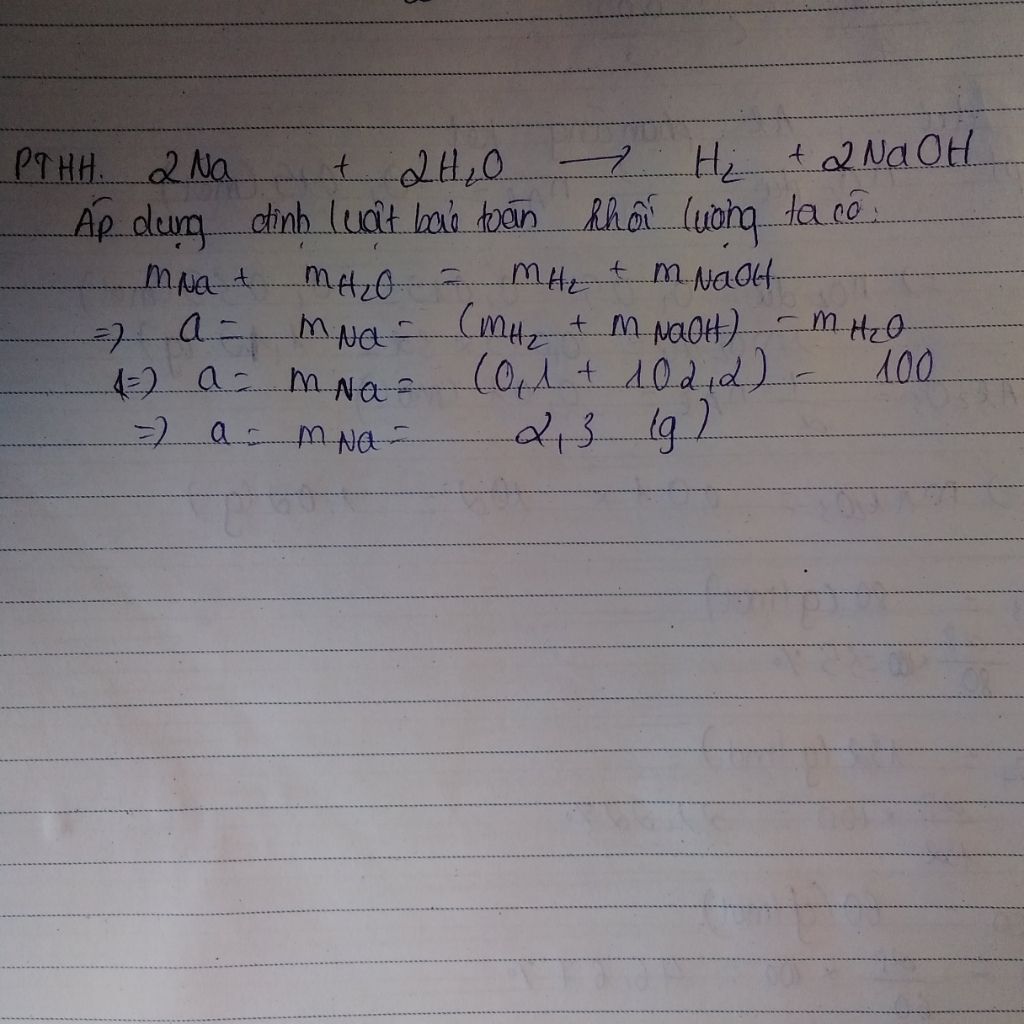 PTHH. 2Na + 2H₂O → H₂ + 2NaOH
Áp dụng định luật bảo toàn khối lượng ta có:
mNa + mH₂O = mH₂ + mNaOH
=> a = mNa = (mH₂ + mNaOH) - mH₂O
<=> a = mNa = (0,1 + 102,2) - 100
=> a = mNa = 2,3 (g)